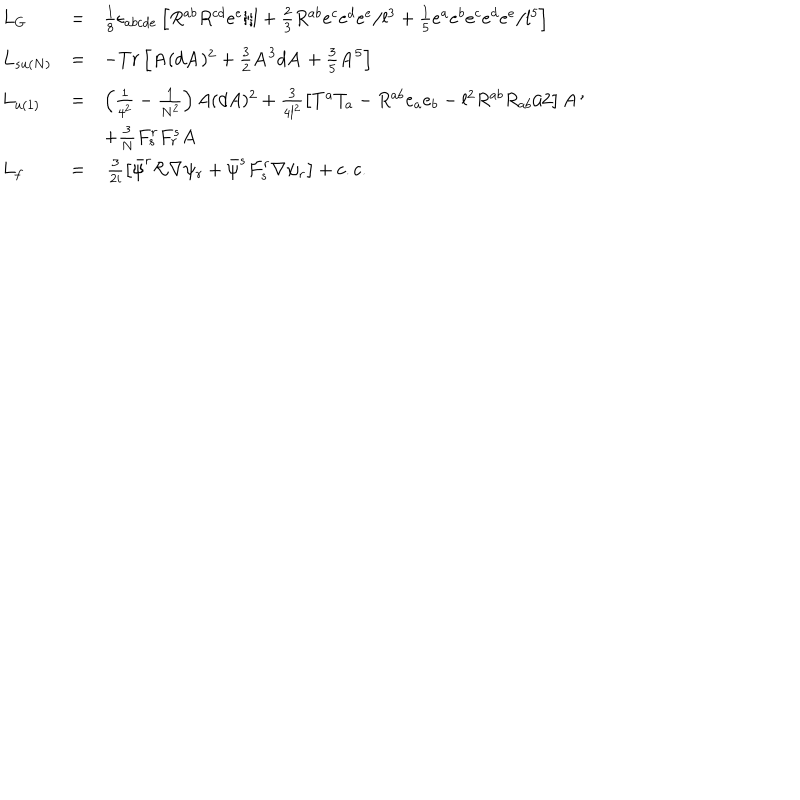 L_G = \frac{1}{8} ϵ_{abcde} [ R^{ab} R^{cd} e^e /l + \frac{2}{3} R^{ab} e^c e^d e^e /l^3 + \frac{1}{5} e^a e^b e^c e^d e^e /l^5 ]
L_{su(N)} = -Tr [ A(dA)^2 + \frac{3}{2} A^3 dA + \frac{3}{5} A^5 ]
L_{u(1)} = ( \frac{1}{4^2} - \frac{1}{N^2} ) A(dA)^2 + \frac{3}{4l^2} [ T^a T_a - R^{ab} e_a e_b - l^2 R^{ab} R_{ab} 2 ] A ,
+ \frac{3}{N} F^r_s F^s_r A
L_f = \frac{3}{2i} [ \bar{ψ}^r R ∇ψ_r + \bar{ψ}^s F^r_s ∇ψ_r ] + c.c.